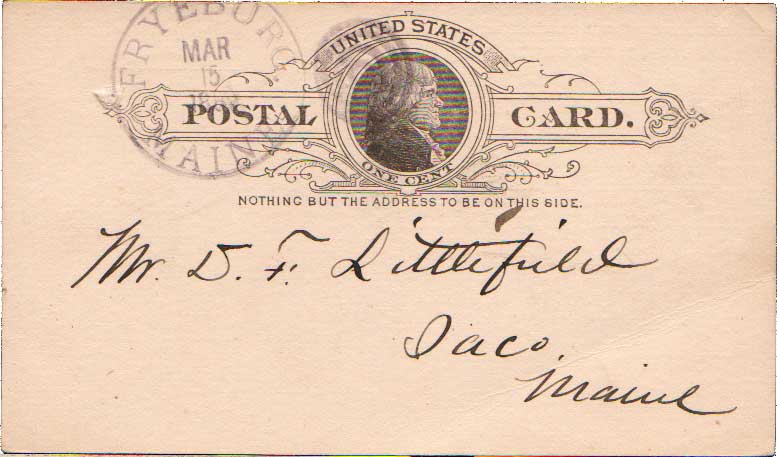 FRYEBURG.
MAR
15
MAINE
UNITED STATES
POSTAL CARD.
ONE CENT
NOTHING BUT THE ADDRESS TO BE ON THIS SIDE.
Mr. D. F. Littlefield
Saco,
Maine